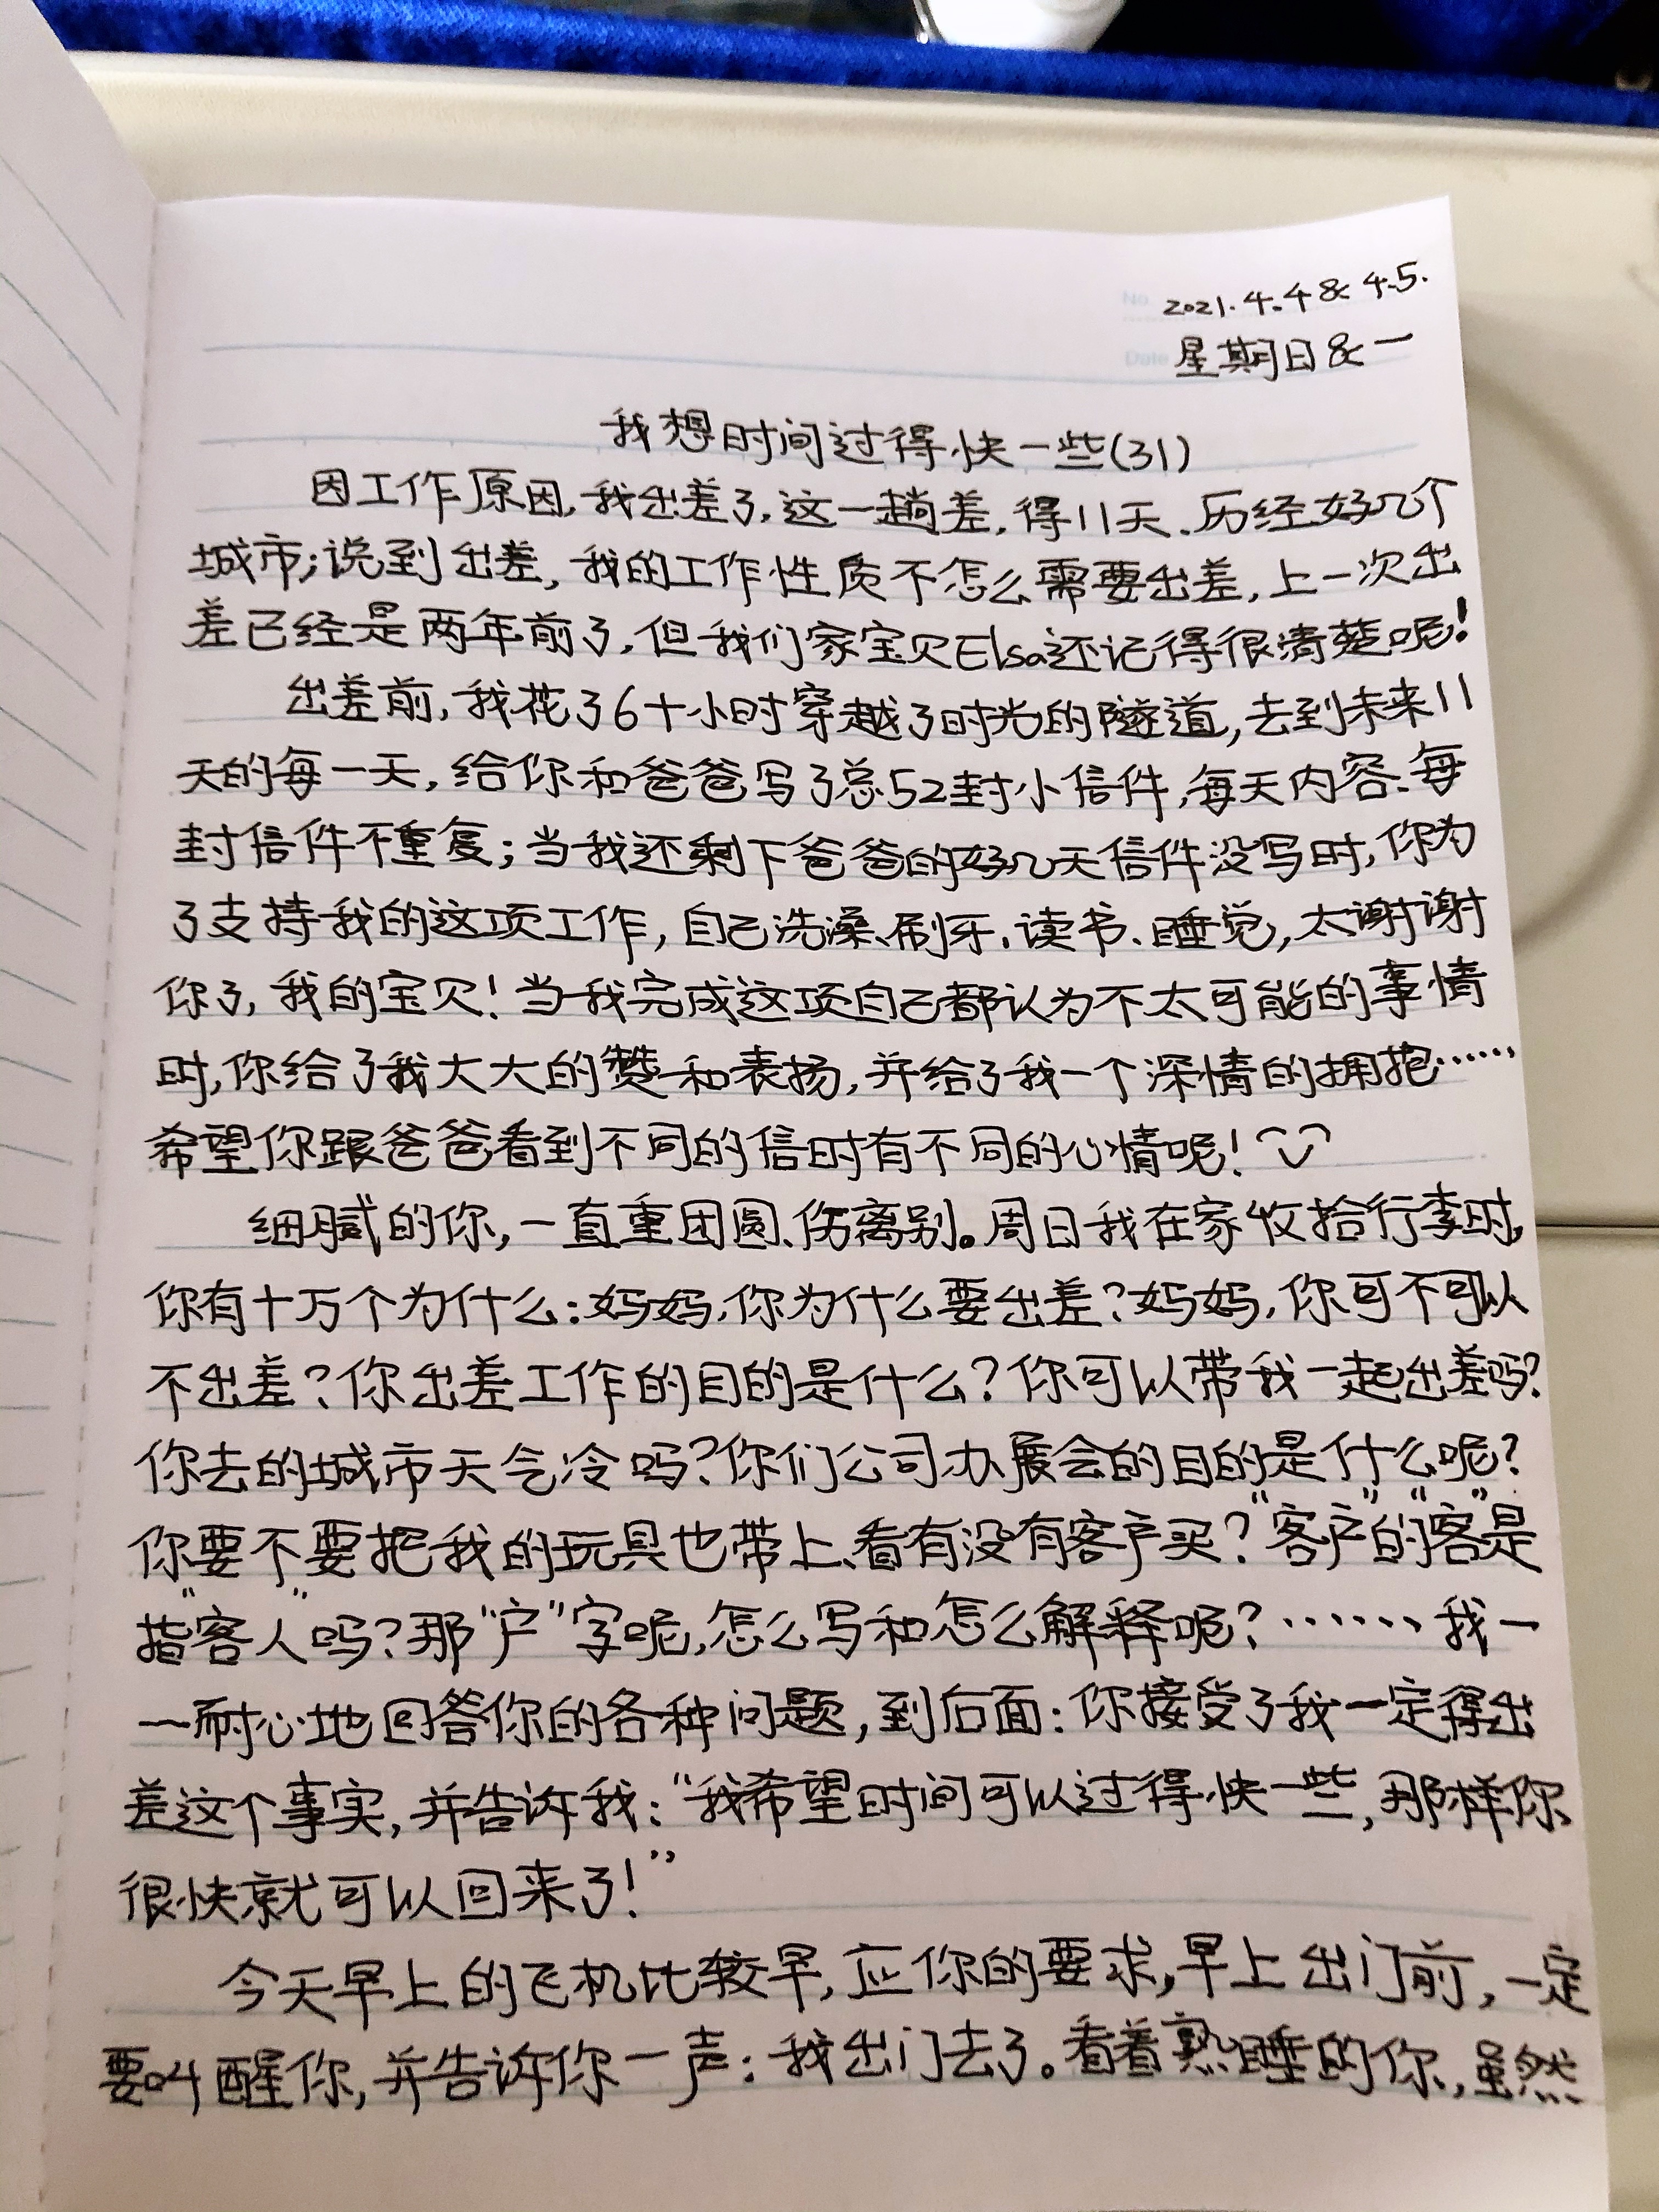 No.
2021.4.4&4.5.
Date
星期日&一
我想时间过得快一些(31)
因工作原因,我出差了,这一趟差,得11天、历经好几个
城市;说到出差,我的工作性质不怎么需要出差,上一次出
差已经是两年前了,但我们家宝贝Elsa还记得很清楚呢!
出差前,我花了6十小时穿越了时光的隧道,去到未来11
天的每一天,给你和爸爸写了总52封小信件,每天内容、每
封信件不重复;当我还剩下爸爸的好几天信件没写时,你为
了支持我的这项工作,自己洗澡、刷牙、读书、睡觉,太谢谢
你了,我的宝贝!当我完成这项自己都认为不太可能的事情
时,你给了我大大的赞和表扬,并给了我一个深情的拥抱……
希望你跟爸爸看到不同的信时有不同的心情呢!
细腻的你,一直重团圆、伤离别。周日我在家收拾行李时,
你有十万个为什么:妈妈,你为什么要出差?妈妈,你可不可以
不出差?你出差工作的目的是什么?你可以带我一起出差吗?
你去的城市天气冷吗?你们公司办展会的目的是什么呢?
你要不要把我的玩具也带上、看有没有客户买?“客户”的“客”是
指“客人”吗?那“户”字呢,怎么写和怎么解释呢?……我一
一耐心地回答你的各种问题,到后面:你接受了我一定得出
差这个事实,并告诉我:“我希望时间可以过得快一些,那样你
很快就可以回来了!”
今天早上的飞机比较早,应你的要求,早上出门前,一定
要叫醒你,并告诉你一声:我出门去了。看着熟睡的你,虽然